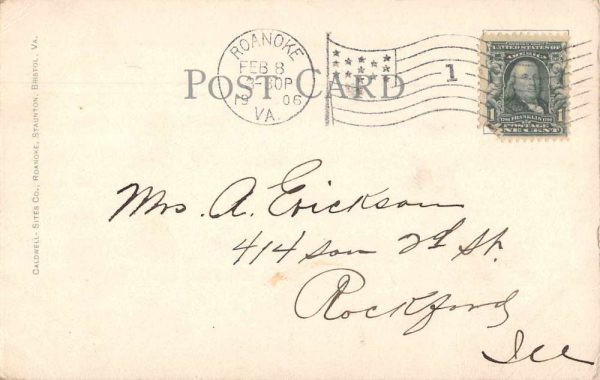 ROANOKE
FEB 8
3-30P
19 06
VA.
1
POST CARD
UNITED STATES OF AMERICA
1 FRANKLIN 1
POSTAGE
ONE CENT
CALDWELL-SITES CO., ROANOKE, STAUNTON, BRISTOL, VA.
Mrs. A. Erickson
414 son 2d St.
Rockford
Ill